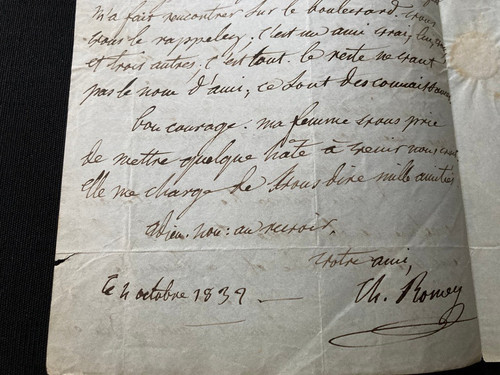 m'a fait rencontrer sur le boulevard. vous
vous le rappelez. c'est un ami vrai, lui,
et trois autres. c'est tout. le reste ne vaut
pas le nom d'ami, ce sont des connaissances
bon courage. ma femme vous prie
de mettre quelque hâte à venir nous
elle me charge de vous dire mille amitiés
adieu. non: au revoir.
votre ami,
Ch. Romey
le 4 octobre 1839